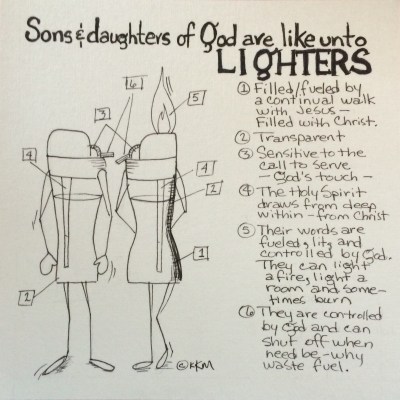 Sons & daughters of God are like unto
LIGHTERS
① Filled/fueled by
a continual walk
with Jesus—
Filled with Christ.
② Transparent
③ Sensitive to the
call to serve
—God's touch—
④ The Holy Spirit
draws from deep
within—from Christ
⑤ Their words are
fueled, lit, and
controlled by God.
They can light
a fire, light a
room and some-
times burn
⑥ They are controlled
by God and can
shut off when
need be—why
waste fuel.
6
3
5
4
4
2
1
2
©KKM